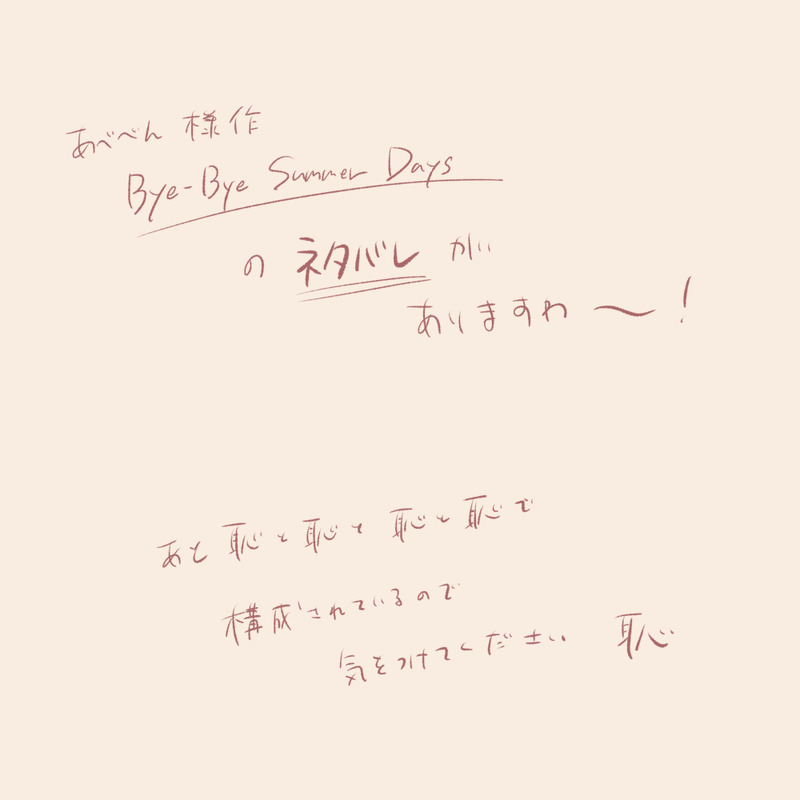 あべべん 様作
Bye-Bye Summer Days
の ネタバレ が
ありますわ 〜 !
あと 恥と恥と 恥と恥で
構成されているので
気をつけてください 恥